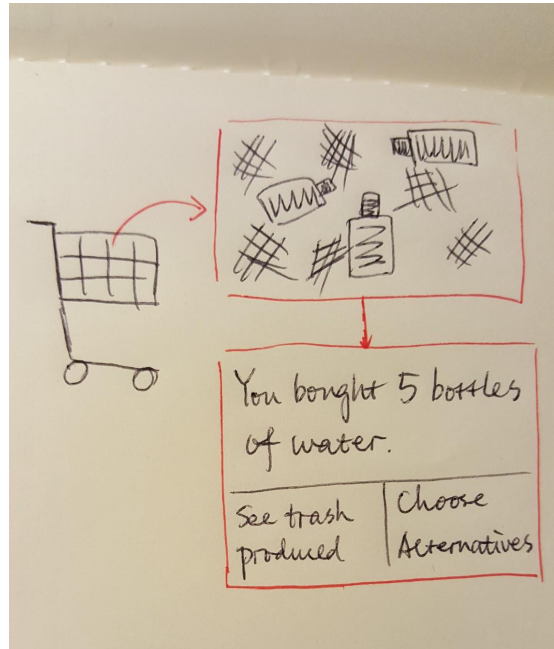 You bought 5 bottles
of water.
See trash
produced
Choose
Alternatives